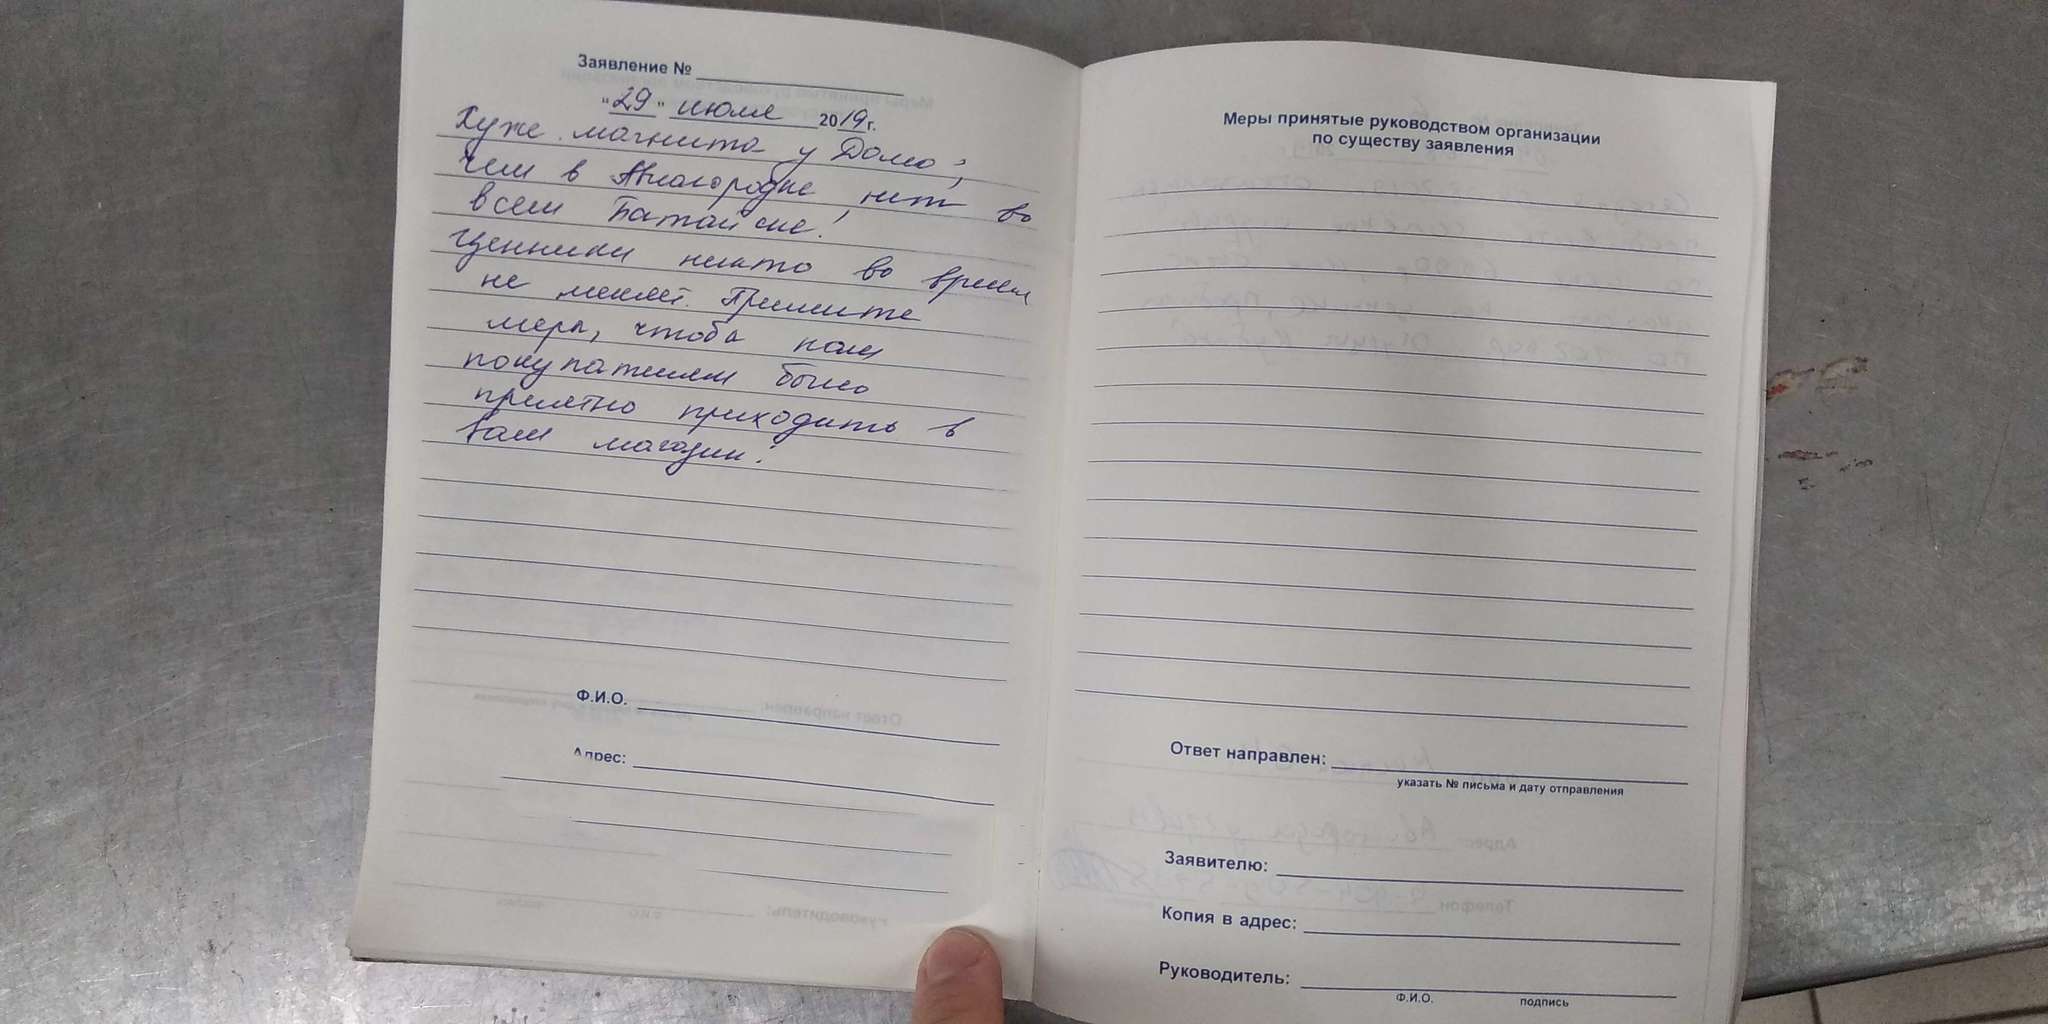 Заявление №
"29" июля 2019г.
Хуже магнита у Дома,
чем в Авиагородке, нет во
всем Батайске!
Ценники никто во время
не меняет. Примите
меры, чтоба нам
покупателям было
приятно приходить в
ваш магазин!
Ф.И.О.
Адрес:
Меры принятые руководством организации
по существу заявления
Ответ направлен:
указать № письма и дату отправления
Заявителю:
Копия в адрес:
Руководитель:
Ф.И.О. подпись